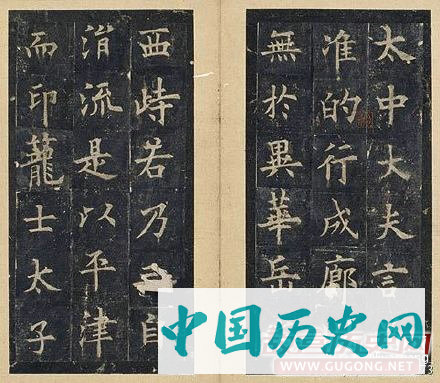 太中大夫言
准的行成廊
無於異華岳
西峙若乃自
流是以平津
而印士太子
中国历史网
WWW.GUGONG.NET